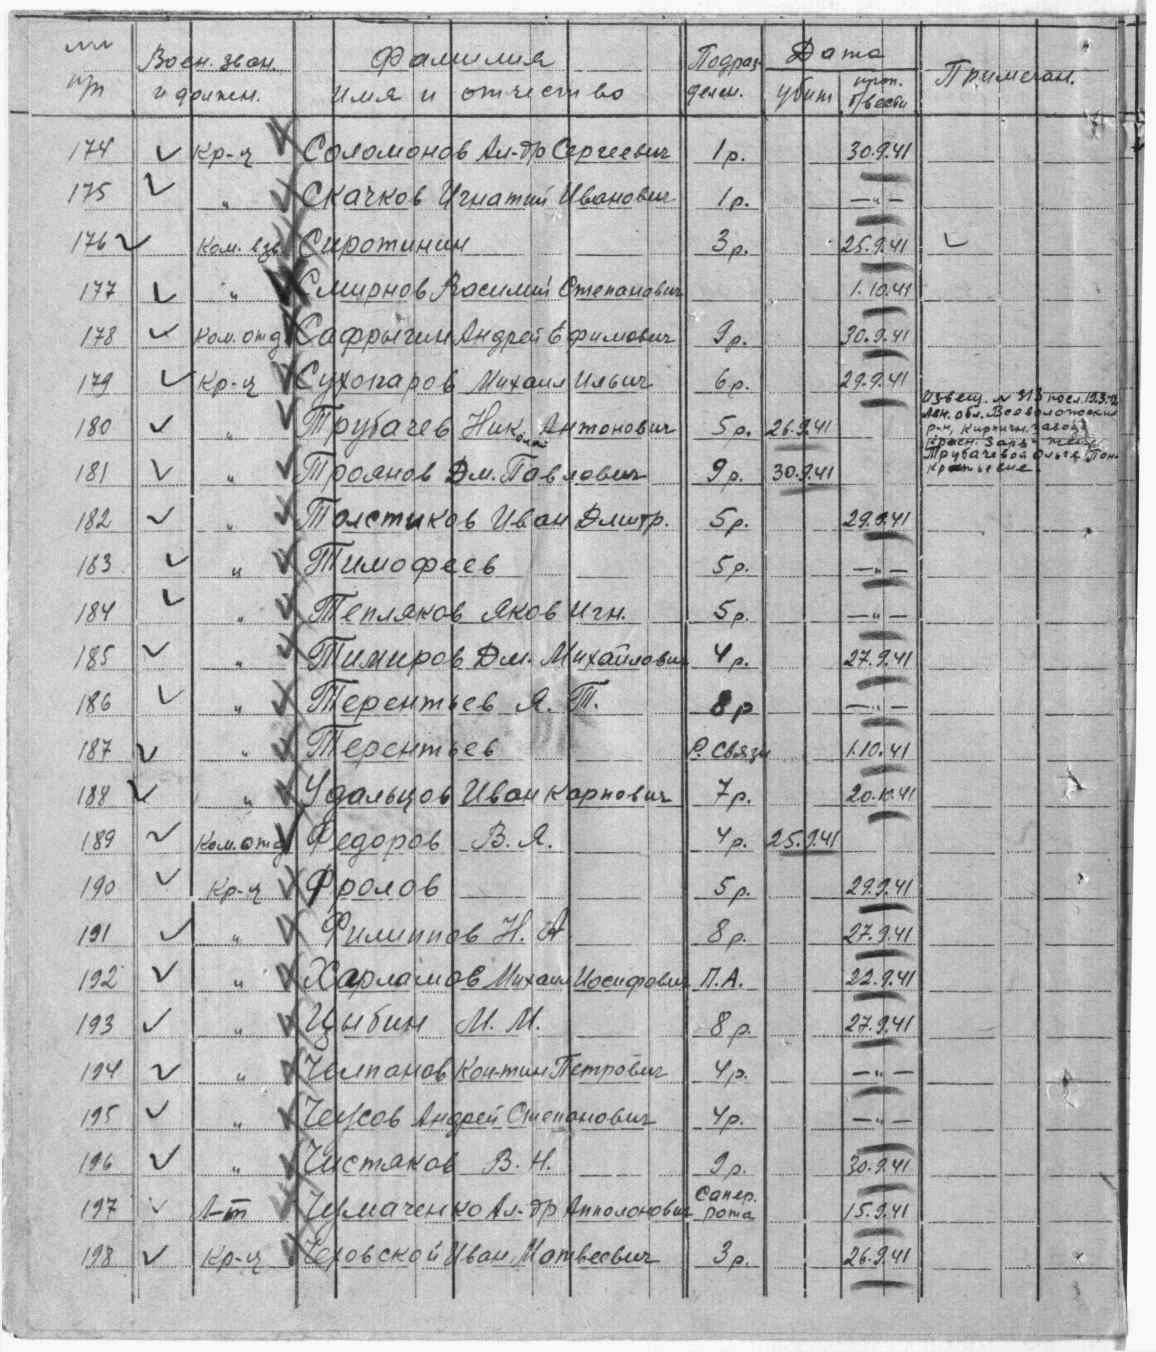 №№ Воен. зван. Фамилия Подраз- Дата Примечан.
п/п и должн. имя и отчество делен. убит проп. б/вести
174 Кр-ц Соломонов Ал-др Сергеевич 1р. 30.9.41
175 " Скачков Игнатий Иванович 1р. —"—
176 Ком. взв. Сиротинин 3р. 25.9.41
177 " Смирнов Василий Степанович 1.10.41
178 Ком. отд Сафрыгин Андрей Ефимович 9р. 30.9.41
179 Кр-ц Сухопаров Михаил Ильич 6р. 29.9.41
180 " Трубачев Николай Антонович 5р. 26.9.41
Извещ. № 313 посл.
Лен. обл. Всеволожский
р-н, Кирпичн. завод
Красн. Заря - жене
Трубачевой Ольге
181 " Троянов Дм. Павлович 9р. 30.9.41
182 " Толстиков Иван Дмитр. 5р. 29.9.41
183 " Тимофеев 5р. —"—
184 " Тепляков Яков Игн. 5р. —"—
185 " Тимиров Дм. Михайлович 4р. 27.9.41
186 " Терентьев Я. Т. 8р —"—
187 " Терентьев Р. связи 1.10.41
188 " Удальцов Иван Карпович 7р. 20.10.41
189 Ком. отд Федоров В. Я. 4р. 25.9.41
190 Кр-ц Фролов 5р. 29.9.41
191 " Филиппов Н. А. 8р. 27.9.41
192 " Харламов Михаил Иосифович П.А. 22.9.41
193 " Цыбин М. М. 8р. 27.9.41
194 " Челпанов Кон-тин Петрович 4р. —"—
195 " Чеусов Андрей Степанович 4р. —"—
196 " Чистяков В. Н. 9р. 30.9.41
197 Л-т Чумаченко Ал-др Апполонович Сапер. рота 15.9.41
198 Кр-ц Чеховской Иван Матвеевич 3р. 26.9.41